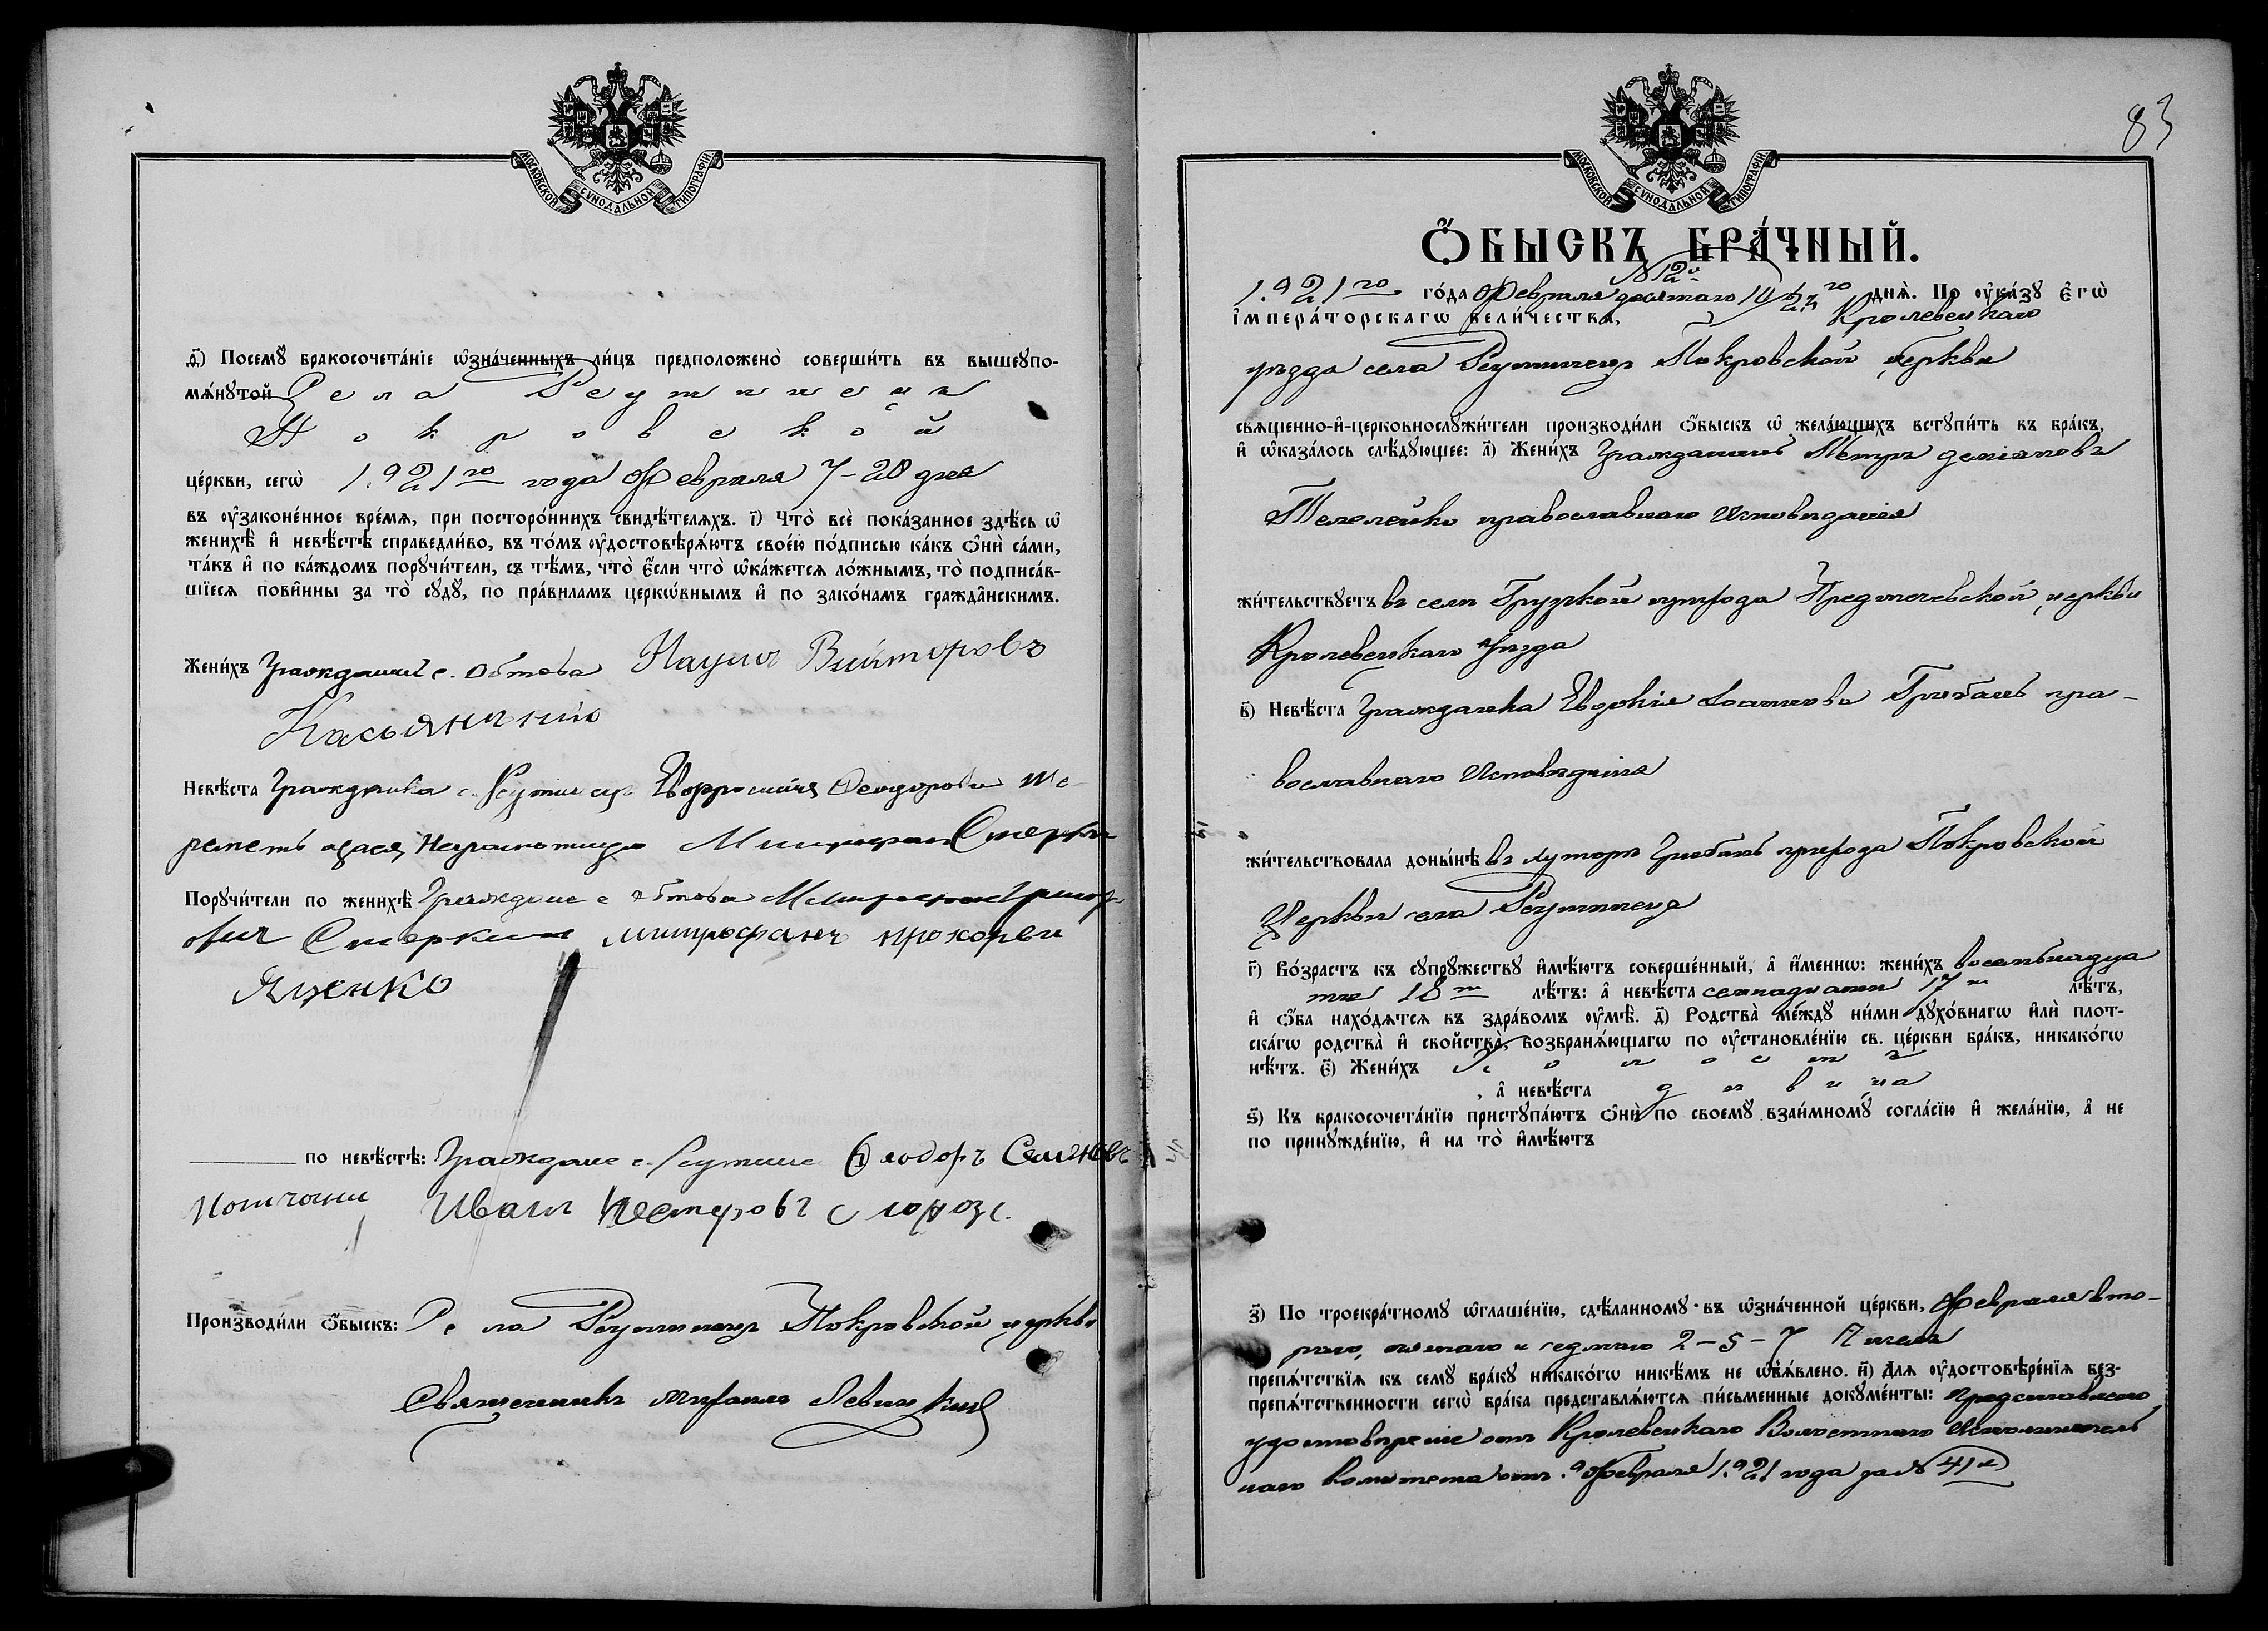 МОСКОВСКОЙ СУНОДАЛЬНОЙ ТИПОГРАФІИ
ѳ҃) Посемꙋ̀ бракосочета́нїе ѡ҆зна́ченныхъ ли́цъ предположено̀ соверши́ть въ вышеꙋпо-
мѧ́нꙋтой Села Реутинецъ
Покровской
це́ркви, сегѡ̀ 1921го года Февраля 7-20 дня
въ ᲂу҆законе́нное вре́мѧ, при посторо́ннихъ свидѣ́телѧхъ. і҃) Что̀ всѐ пока́занное здѣ́сь ѡ҆
женихѣ̀ и҆ невѣ́стѣ справедли́во, въ то́мъ ᲂу҆достовѣрѧ́ютъ свое́ю по́дписью ка́къ ѻ҆нѝ са́ми,
та́къ и҆ по ка́ждомъ порꙋчи́тели, съ тѣ́мъ, что̀ є҆́сли что̀ ѡ҆ка́жетсѧ ло́жнымъ, то̀ подписа́в-
шїесѧ пови́нны за то̀ сꙋдꙋ̀, по пра́виламъ церкѡ́внымъ и҆ по зако́намъ гражда̑нскимъ.
Жени́хъ Гражданинъ с. Обтова Наумъ Викторовъ
Касьяненко
Невѣ́ста Гражданка с. Реутинецъ Евфросинія Феодорова Ше-
реметь а за нея Неграмотную Митрофан Стеркин
Порꙋчи́тели по женихѣ̀ Граждане с Обтова Митрофан Григор-
ович Стеркин митрофанъ прохоръви
Яценко
по невѣ́стѣ: Граждане с. Реутинец Ѳеодоръ Семеновъ
Иван Нестеровъ
Производи́ли ѻ҆́быскъ: Села Реутинецъ Покровской церкви
Священникъ Михаилъ Левицкій
83
МОСКОВСКОЙ СУНОДАЛЬНОЙ ТИПОГРАФІИ
Ѻ҆́БЫСКЪ БРА́ЧНЫЙ.
N 12й
1921го го́да Февраля десятаго 10/23го днѧ̀. По ᲂу҆ка́зꙋ Є҆гѡ̀
І҆мпера́торскагѡ вели́чества, Кролевецкаго
уѣзда села Реутинецъ Покровской церкви
свѧще́нно-и҆-церковнослꙋжи́тели производи́ли ѻ҆́быскъ ѡ҆ жела́ющихъ встꙋпи́ть въ бра́къ,
и҆ ѡ҆каза́лось слѣ́дꙋющее: а҃) Жени́хъ Гражданинъ Петръ Деміановъ
Телелейко православнаго исповѣданія
жи́тельствꙋетъ въ селѣ Грузкой прихода Предтечевской церкви
Кролевецкаго уѣзда
в҃) Невѣ́ста Гражданка Евдокія Іоаннова Грибань пра-
вославнаго исповѣданія
жи́тельствовала доны́нѣ въ хуторѣ Грибань прихода Покровской
Церкви села Реутинецъ
г҃) Во́зрастъ къ сꙋпрꙋ́жествꙋ и҆мѣ́ютъ соверше́нный, а҆ и҆́меннѡ: жени́хъ восемьнадца
ти 18ти лѣ́тъ: а҆ невѣ́ста семнадцати 17ти лѣ́тъ,
и҆ ѻ҆́ба нахо́дѧтсѧ въ здра́вомъ ᲂу҆мѣ̀. д҃) Родства̀ междꙋ̀ ни́ми дꙋхо́внагѡ и҆лѝ плот-
ска́гѡ родства̀ и҆ свойства̀, возбранѧ́ющагѡ по ᲂу҆становле́нїю св. це́ркви бра́къ, никако́гѡ
нѣ́тъ. є҃) Жени́хъ холостъ
, а҆ невѣ́ста дѣвица
ѕ҃) Къ бракосочета́нїю пристꙋпа́ютъ ѻ҆нѝ по своемꙋ̀ взаи́мномꙋ согла́сїю и҆ жела́нїю, а҆ не
по принꙋжде́нїю, и҆ на то̀ и҆мѣ́ютъ
з҃) По троекра́тномꙋ ѡ҆глаше́нїю, сдѣ́ланномꙋ въ ѡ҆зна́ченной це́ркви, Февраля вто-
раго, пятаго и седмаго 2-5-7 чиселъ
препѧ́тствїѧ къ семꙋ̀ бра́кꙋ никако́гѡ никѣ́мъ не ѡ҆б̾ѧ́влено. и҃) Длѧ ᲂу҆достовѣре́нїѧ без-
препѧ́тственности сегѡ̀ бра́ка представлѧ́ютсѧ пи́сьменные докꙋме́нты: Представлено
удостовѣреніе отъ Кролевецкаго Волостнаго Исполнитель
наго Комитета отъ 9 Февраля 1921 года за N 41м